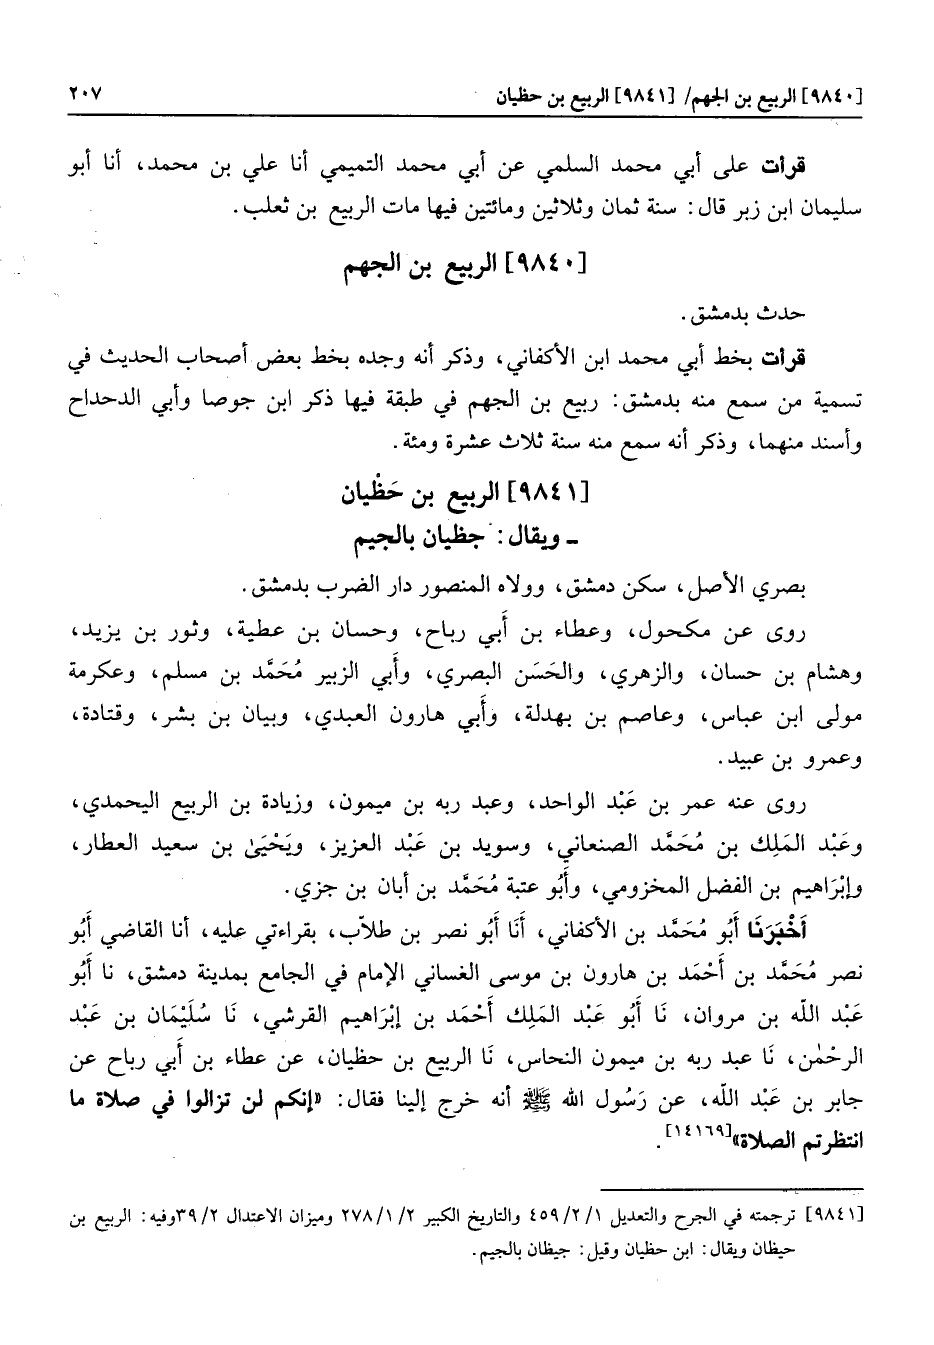 [٩٨٤٠] الربيع بن الجهم/ [٩٨٤١] الربيع بن حظيان ٢٠٧
قرأت على أبي محمد السلمي عن أبي محمد التميمي أنا علي بن محمد، أنا أبو
سليمان ابن زبر قال: سنة ثمان وثلاثين ومائتين فيها مات الربيع بن ثعلب.
[٩٨٤٠] الربيع بن الجهم
حدث بدمشق.
قرأت بخط أبي محمد ابن الأكفاني، وذكر أنه وجده بخط بعض أصحاب الحديث في
تسمية من سمع منه بدمشق: ربيع بن الجهم في طبقة فيها ذكر ابن جوصا وأبي الدحداح
وأسند منهما، وذكر أنه سمع منه سنة ثلاث عشرة ومئة.
[٩٨٤١] الربيع بن حَظْيان
ـ ويقال: جظيان بالجيم
بصري الأصل، سكن دمشق، وولاه المنصور دار الضرب بدمشق.
روى عن مكحول، وعطاء بن أَبي رباح، وحسان بن عطية، وثور بن يزيد،
وهشام بن حسان، والزهري، والحَسَن البصري، وأَبي الزبير مُحَمَّد بن مسلم، وعكرمة
مولى ابن عباس، وعاصم بن بهدلة، وأَبي هارون العبدي، وبيان بن بشر، وقتادة،
وعمرو بن عبيد.
روى عنه عمر بن عَبْد الواحد، وعبد ربه بن ميمون، وزيادة بن الربيع اليحمدي،
وعَبْد المَلِك بن مُحَمَّد الصنعاني، وسويد بن عَبْد العزيز، ويَحْيَىٰ بن سعيد العطار،
وإبْرَاهيم بن الفضل المخزومي، وأَبُو عتبة مُحَمَّد بن أبان بن جزي.
اَخْبَرَنَا أَبُو مُحَمَّد بن الأكفاني، أَنَا أَبُو نصر بن طلاّب، بقراءتي عليه، أنا القاضي أَبُو
نصر مُحَمَّد بن أَحْمَد بن هارون بن موسى الغساني الإمام في الجامع بمدينة دمشق، نا أَبُو
عَبْد اللّه بن مروان، نَا أَبُو عَبْد المَلِك أَحْمَد بن إبْرَاهيم القرشي، نَا سُلَيْمَان بن عَبْد
الرحْمٰن، نَا عبد ربه بن ميمون النحاس، نَا الربيع بن حظيان، عن عطاء بن أَبي رباح عن
جابر بن عَبْد اللّه، عن رَسُول الله ﷺ أنه خرج إلينا فقال: «إنكم لن تزالوا في صلاة ما
انتظرتم الصلاة»[١٤١٦٩].
[٩٨٤١] ترجمته في الجرح والتعديل ١/ ٢/ ٤٥٩ والتاريخ الكبير ٢/ ١/ ٢٧٨ وميزان الاعتدال ٢/ ٣٩وفيه: الربيع بن
حيظان ويقال: ابن حظيان وقيل: جيظان بالجيم.